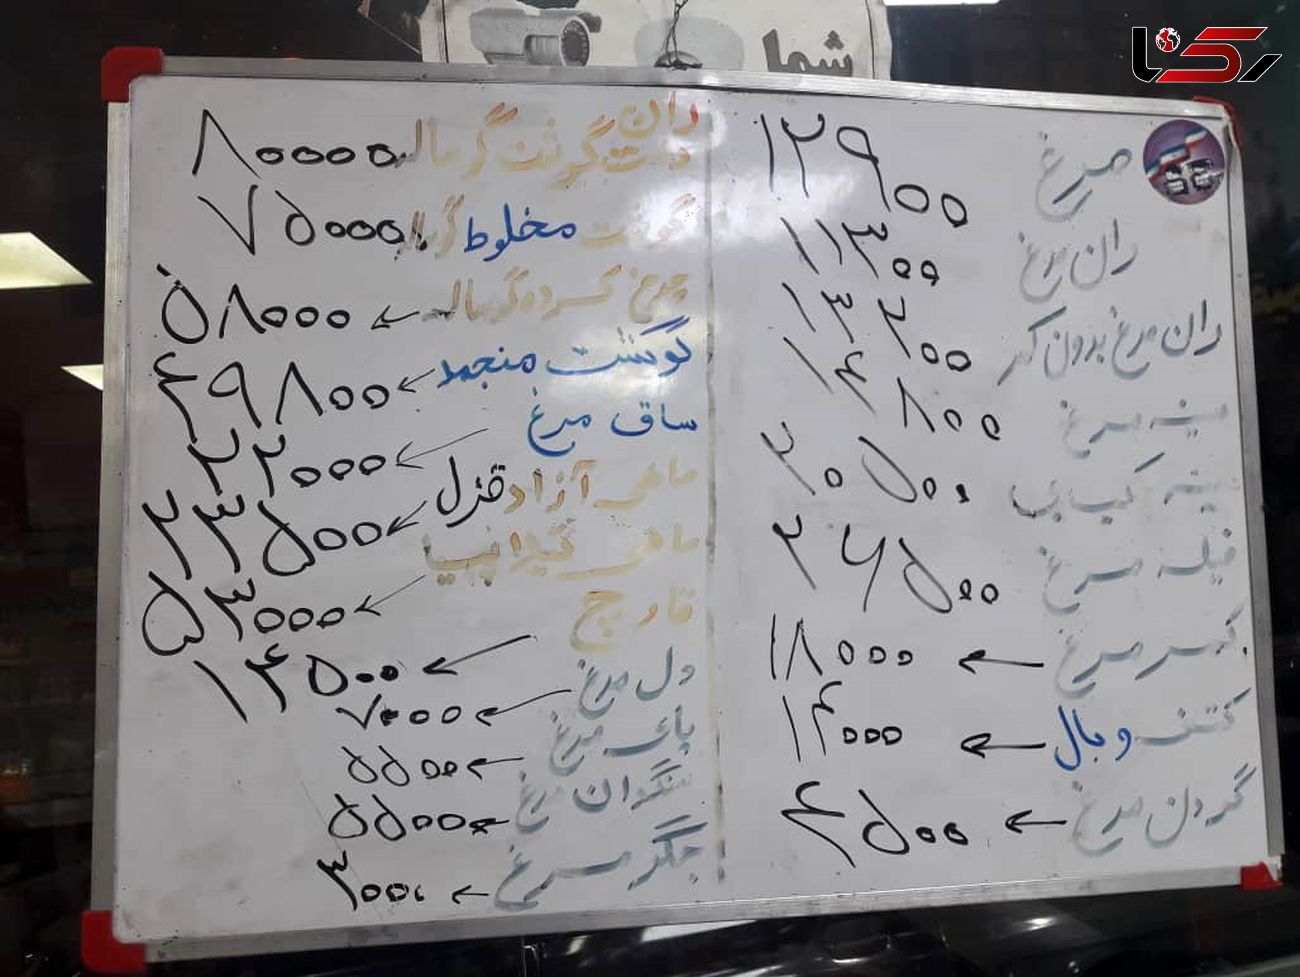 رکنا
شما
مرغ ۱۲۹۰۰
ران مرغ ۱۱۳۰۰
ران مرغ بدون کمر ۱۳۲۰۰
سینه مرغ ۱۴۸۰۰
سینه کبابی ۲۰۵۰۰
فیله مرغ ۲۶۵۰۰
کمر مرغ ← ۱۸۰۰۰
کتف و بال ← ۱۴۰۰۰
گردن مرغ ← ۴۵۰۰
ران
دست گوشت گوساله ۸۰۰۰۰
گوشت مخلوط ۷۵۰۰۰
چرخ کرده گوساله ← ۵۸۰۰۰
گوشت منجمد ← ۴۹۸۰۰
ساق مرغ ← ۲۲۰۰۰
ماهی آزاد قزل ← ۲۳۵۰۰
ماهی تیلاپیا ← ۵۳۰۰۰
قارچ ← ۱۴۵۰۰
دل مرغ ← ۷۰۰۰
پای مرغ ← ۵۵۰۰
سنگدان مرغ ← ۵۵۰۰
جگر مرغ ← ۳۰۰۰